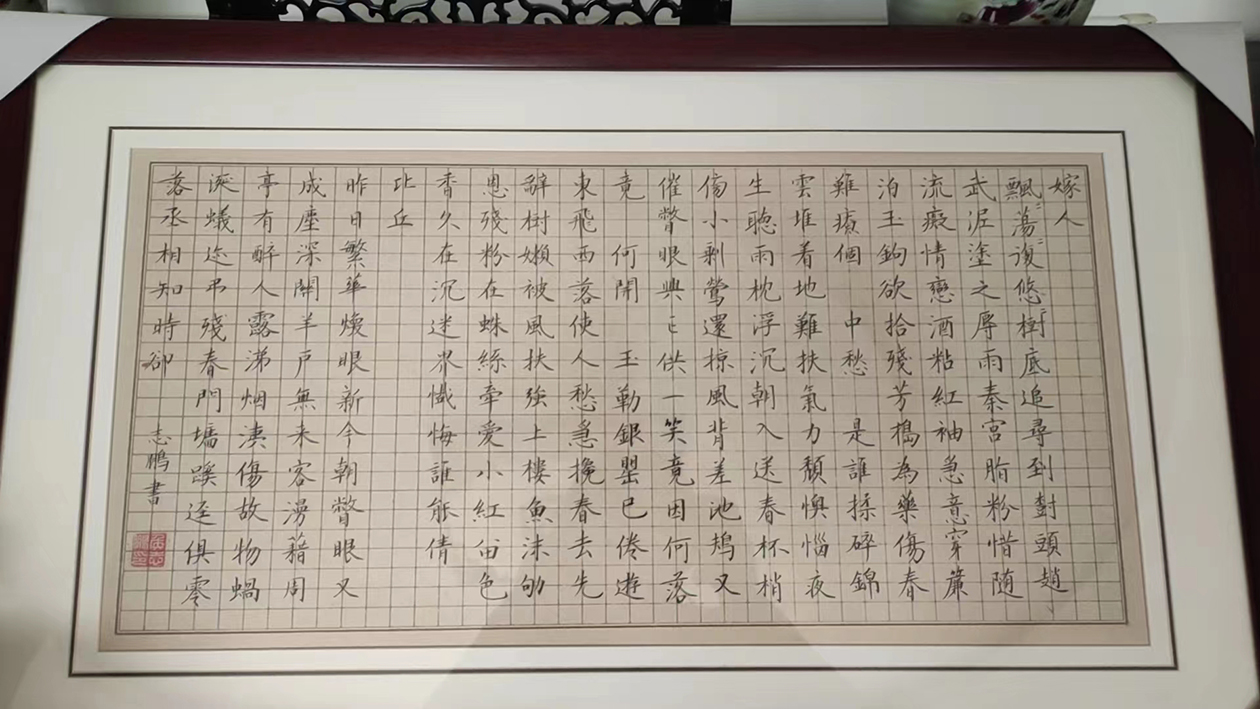 嫁人
飄〻蕩〻復悠〻樹底追尋到對頭趙
武泥塗之辱雨秦宮脂粉惜随
流癡情戀酒粘紅袖急意穿簾
泊玉鉤欲拾殘芳搗為藥傷春
難療個 中愁 是誰揉碎錦
雲堆着地難扶氣力頹懊惱夜
生聴雨枕浮沉朝入送春杯梢
傷小剩鶯還掠風背差池鴆又
催瞥眼興亡供一笑竟因何落
竟 何開 玉勒銀罌已倦遊
東飛西落使人愁急挽春去先
辭樹嬾被風扶強上樓魚沫劬
恩殘粉在蛛絲牽愛小紅留色
香久在沉迷界懺悔誰能倩
比丘
昨日繁華煥眼新今朝瞥眼又
成塵深關羊戶無来客漫藉周
亭有醉人露涕烟洟傷故物蝸
涎蟻迹弔殘春門墻蹊逕俱零
落丞相知時卻
志鵬書